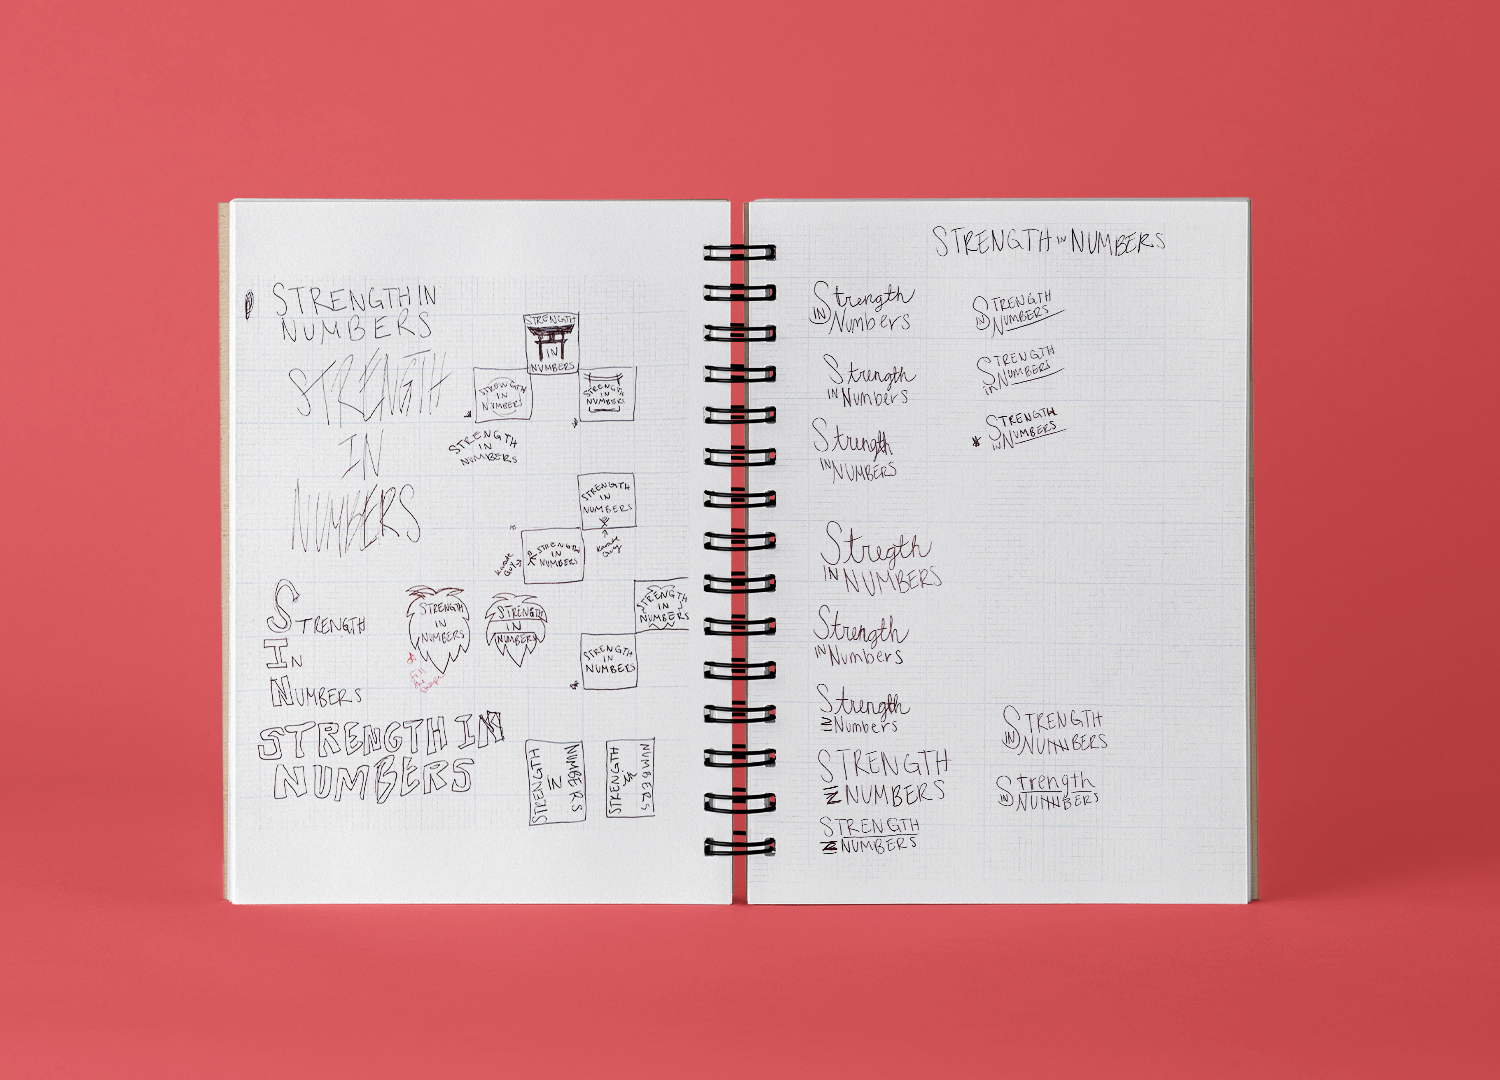 STRENGTH IN
NUMBERS
STRENGTH
IN
NUMBERS
STRENGTH
IN
NUMBERS
STRENGTH
IN
NUMBERS
STRENGTH
IN
NUMBERS
STRENGTH
IN
NUMBERS
STRENGTH
IN
NUMBERS
Karate
Guy
STRENGTH
IN
NUMBERS
Karate
Guy
STRENGTH
IN
NUMBERS
STRENGTH
IN
NUMBERS
STRENGTH
IN
NUMBERS
Fill
the
Shape
STRENGTH
IN
NUMBERS
STRENGTH
IN
NUMBERS
STRENGTH IN
NUMBERS
STRENGTH
IN
NUMBERS
STRENGTH
IN
NUMBERS
STRENGTH IN NUMBERS
Strength
IN Numbers
Strength
IN Numbers
Strength
IN NUMBERS
Stregth
IN NUMBERS
Strength
IN Numbers
Strength
IN Numbers
STRENGTH
IN NUMBERS
STRENGTH
IN NUMBERS
STRENGTH
IN NUMBERS
STRENGTH
IN NUMBERS
STRENGTH
IN NUMBERS
STRENGTH
IN NUMBERS
Strength
IN NUMBERS